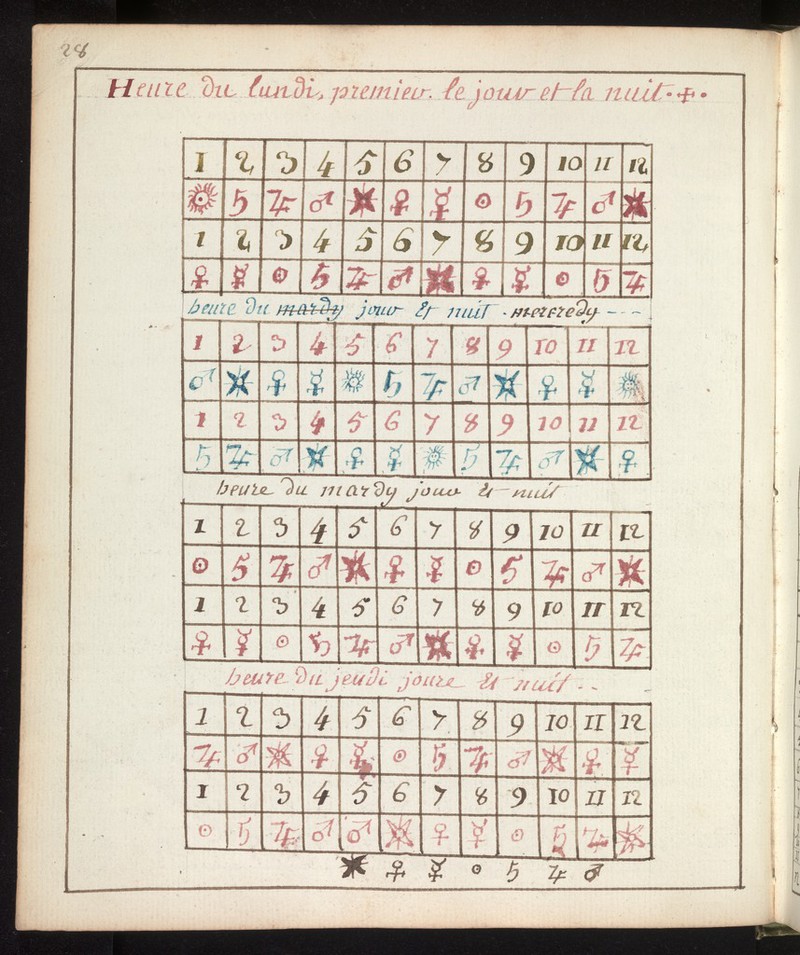 28
Heure du lundi, premier. le jour et la nuit. ✠ .
I 2 3 4 5 6 7 8 9 10 11 12
☉ ♄ ♃ ♂ ★ ♀ ☿ ☉ ♄ ♃ ♂ ★
1 2 3 4 5 6 7 8 9 10 11 12
♀ ☿ ☉ ♄ ♃ ♂ ★ ♀ ☿ ☉ ♄ ♃
heure du mardy jour & nuit . mercredy - - -
1 2 3 4 5 6 7 8 9 10 11 12
♂ ★ ♀ ☿ ☉ ♄ ♃ ♂ ★ ♀ ☿ ☉
1 2 3 4 5 6 7 8 9 10 11 12
♄ ♃ ♂ ★ ♀ ☿ ☉ ♄ ♃ ♂ ★ ♀
heure du mardy jour & nuit
1 2 3 4 5 6 7 8 9 10 11 12
☉ ♄ ♃ ♂ ★ ♀ ☿ ☉ ♄ ♃ ♂ ★
1 2 3 4 5 6 7 8 9 10 11 12
♀ ☿ ☉ ♄ ♃ ♂ ★ ♀ ☿ ☉ ♄ ♃
heure du jeudi joure & nuit . .
1 2 3 4 5 6 7 8 9 10 11 12
♃ ♂ ★ ♀ ☿ ☉ ♄ ♃ ♂ ★ ♀ ☿
1 2 3 4 5 6 7 8 9 10 11 12
☉ ♄ ♃ ♂ ♂ ★ ♀ ☿ ☉ ♄ ♃ ★
★ ♀ ☿ ☉ ♄ ♃ ♂